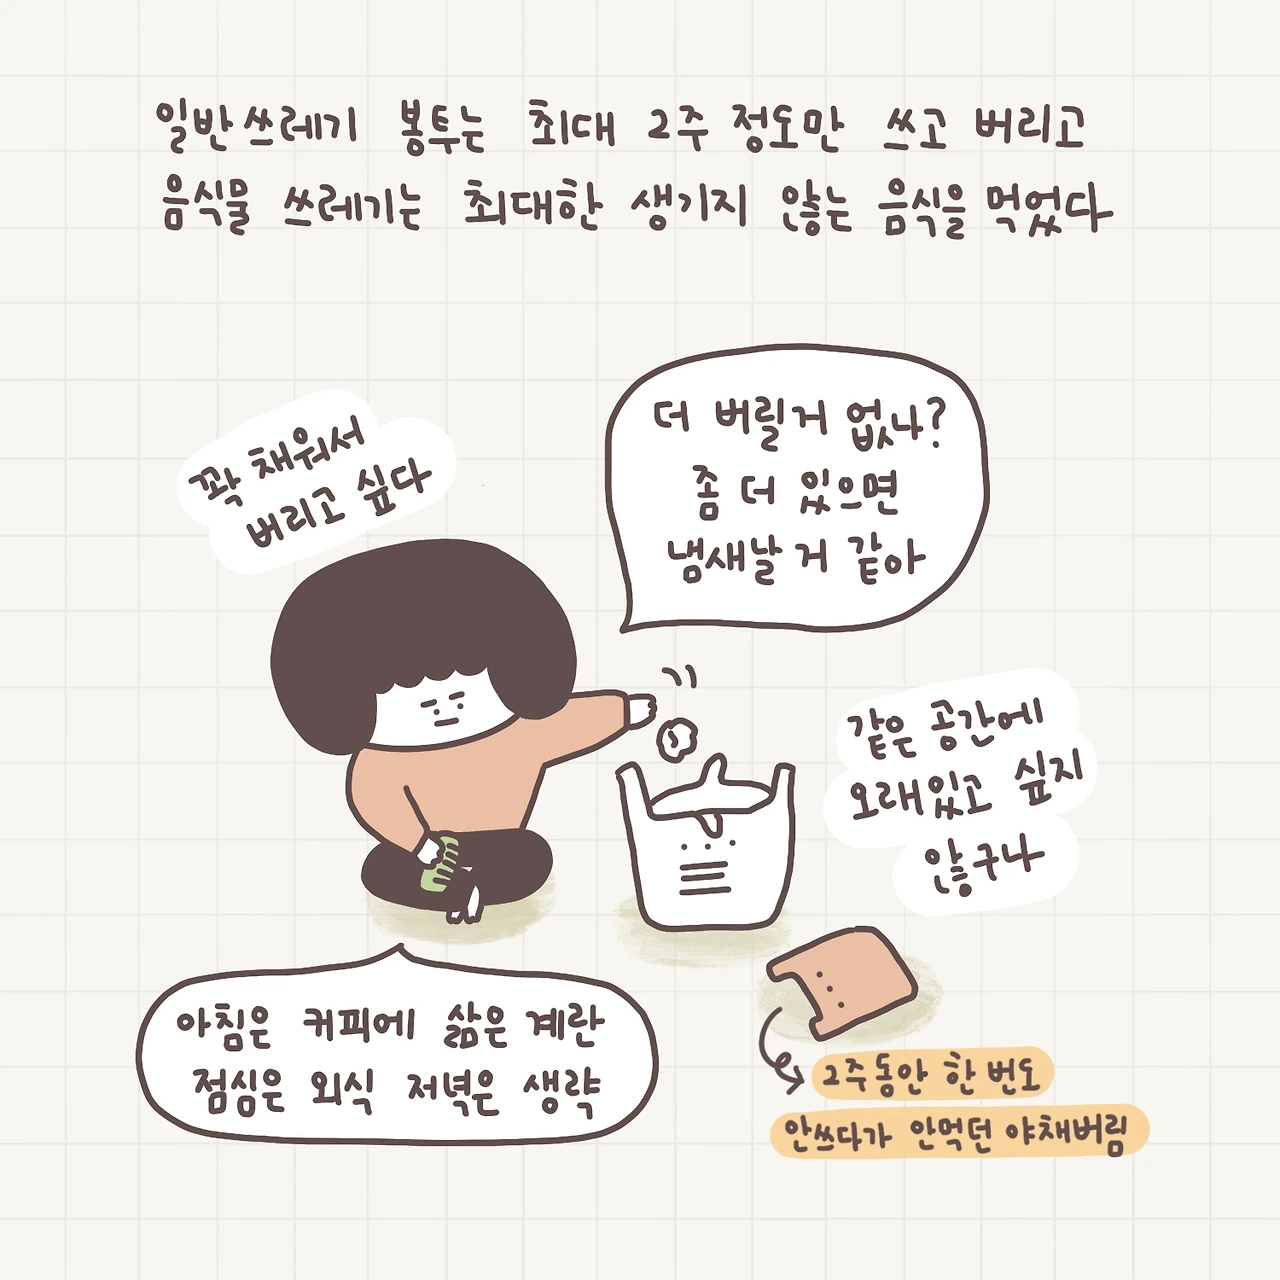 일반쓰레기 봉투는 최대 2주 정도만 쓰고 버리고
음식물 쓰레기는 최대한 생기지 않는 음식을 먹었다
꽉 채워서
버리고 싶다
더 버릴거 없나?
좀 더 있으면
냄새날 거 같아
같은 공간에
오래있고 싶지
않구나
아침은 커피에 삶은 계란
점심은 외식 저녁은 생략
2주동안 한 번도
안쓰다가 안먹던 야채버림